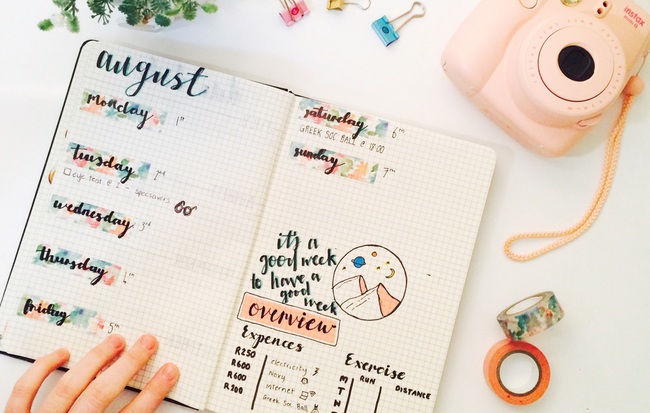 august
monday 1st
tuesday 2nd
eye test @ - specsavers
wednesday 3rd
thursday 4th
friday 5th
saturday 6th
GREEK SOC BALL @ 18:00
sunday 7th
it's a
good week
to have a
good
week
overview
Expences
R250 electricity
R600
R600 internet
Greek Soc Ball
Exercise
RUN DISTANCE
M
T
W
instax